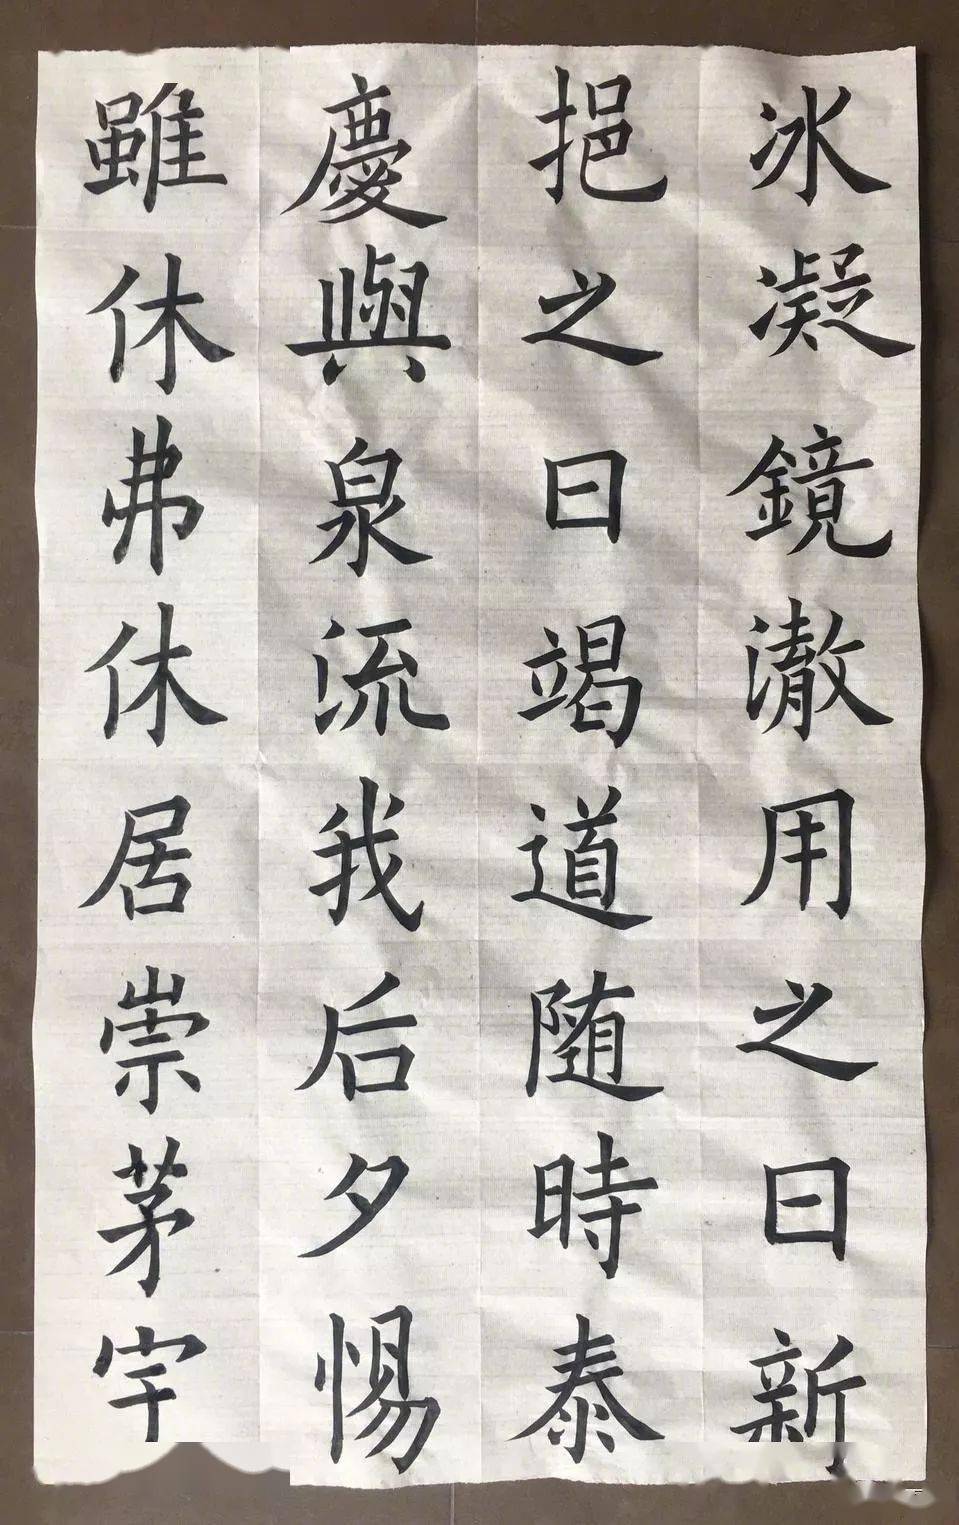 冰凝鏡澈用之日新
挹之日竭道随時泰
慶與泉流我后夕惕
雖休弗休居崇茅宇